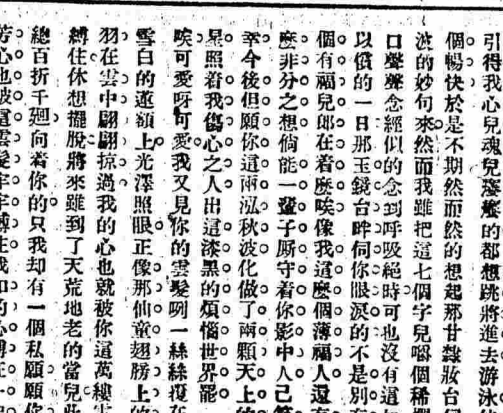 引得我心兒魂兒癢癢的都想跳將進去游泳
個暢快於是不期然而然的想起那甘隸妝台
波的妙句來然而我雖把這七個字兒嚼個稀
口聲聲念經似的念到呼吸絕時可也沒有這
以償的一日那玉鏡台畔伺你眼淚的不是別
個有福兒郎在着麼唉像我這麼個薄福人還
麼非分之想倘能一輩子厮守着你影中人已
幸今後但願你這兩泓秋波化做了兩顆天上
星照着我傷心之人出這漆黑的煩惱世界罷
唉可愛呀可愛我又見你的雲髮咧一絲絲覆在
雪白的蓮額上光澤照眼正像那仙童翅膀上的
羽在雲中翩翩掠過我的心也就被你這萬縷
縛住休想擺脫將來雖到了天荒地老的當兒
總百折千廻向着你的只我却有一個私願願
芳心也被這雲髮牢牢縛住